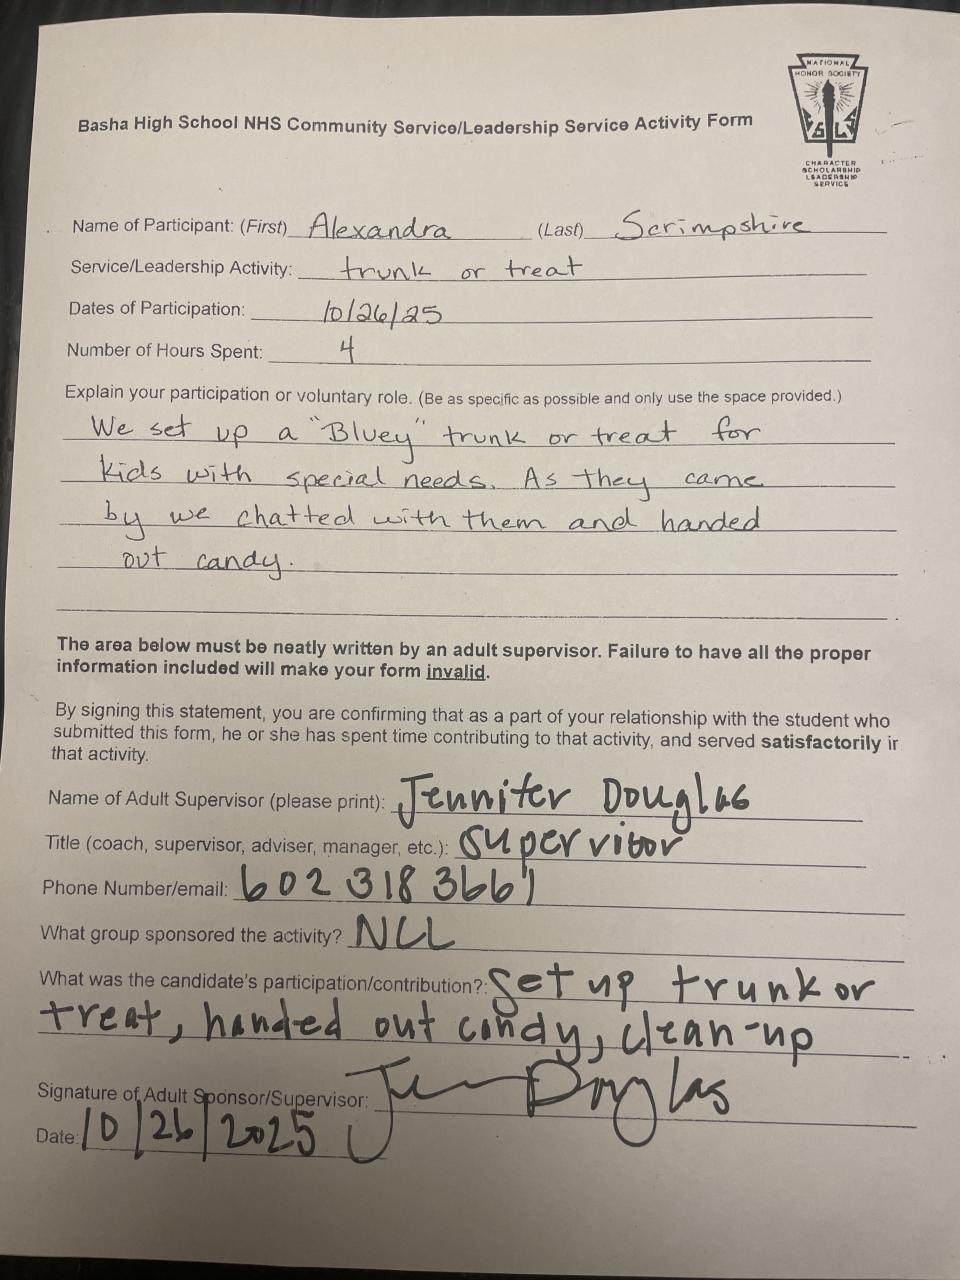 NATIONAL
HONOR SOCIETY
CHARACTER
SCHOLARSHIP
LEADERSHIP
SERVICE
Basha High School NHS Community Service/Leadership Service Activity Form
Name of Participant: (First) Alexandra (Last) Scrimpshire
Service/Leadership Activity: trunk or treat
Dates of Participation: 10/26/25
Number of Hours Spent: 4
Explain your participation or voluntary role. (Be as specific as possible and only use the space provided.)
We set up a "Bluey" trunk or treat for
kids with special needs. As they came
by we chatted with them and handed
out candy.
The area below must be neatly written by an adult supervisor. Failure to have all the proper
information included will make your form invalid.
By signing this statement, you are confirming that as a part of your relationship with the student who
submitted this form, he or she has spent time contributing to that activity, and served satisfactorily in
that activity.
Name of Adult Supervisor (please print): Jennifer Douglas
Title (coach, supervisor, adviser, manager, etc.): supervisor
Phone Number/email: 602 318 3661
What group sponsored the activity? NCL
What was the candidate's participation/contribution?: Set up trunk or
treat, handed out candy, clean-up
Signature of Adult Sponsor/Supervisor: Jen Douglas
Date: 10/26/2025